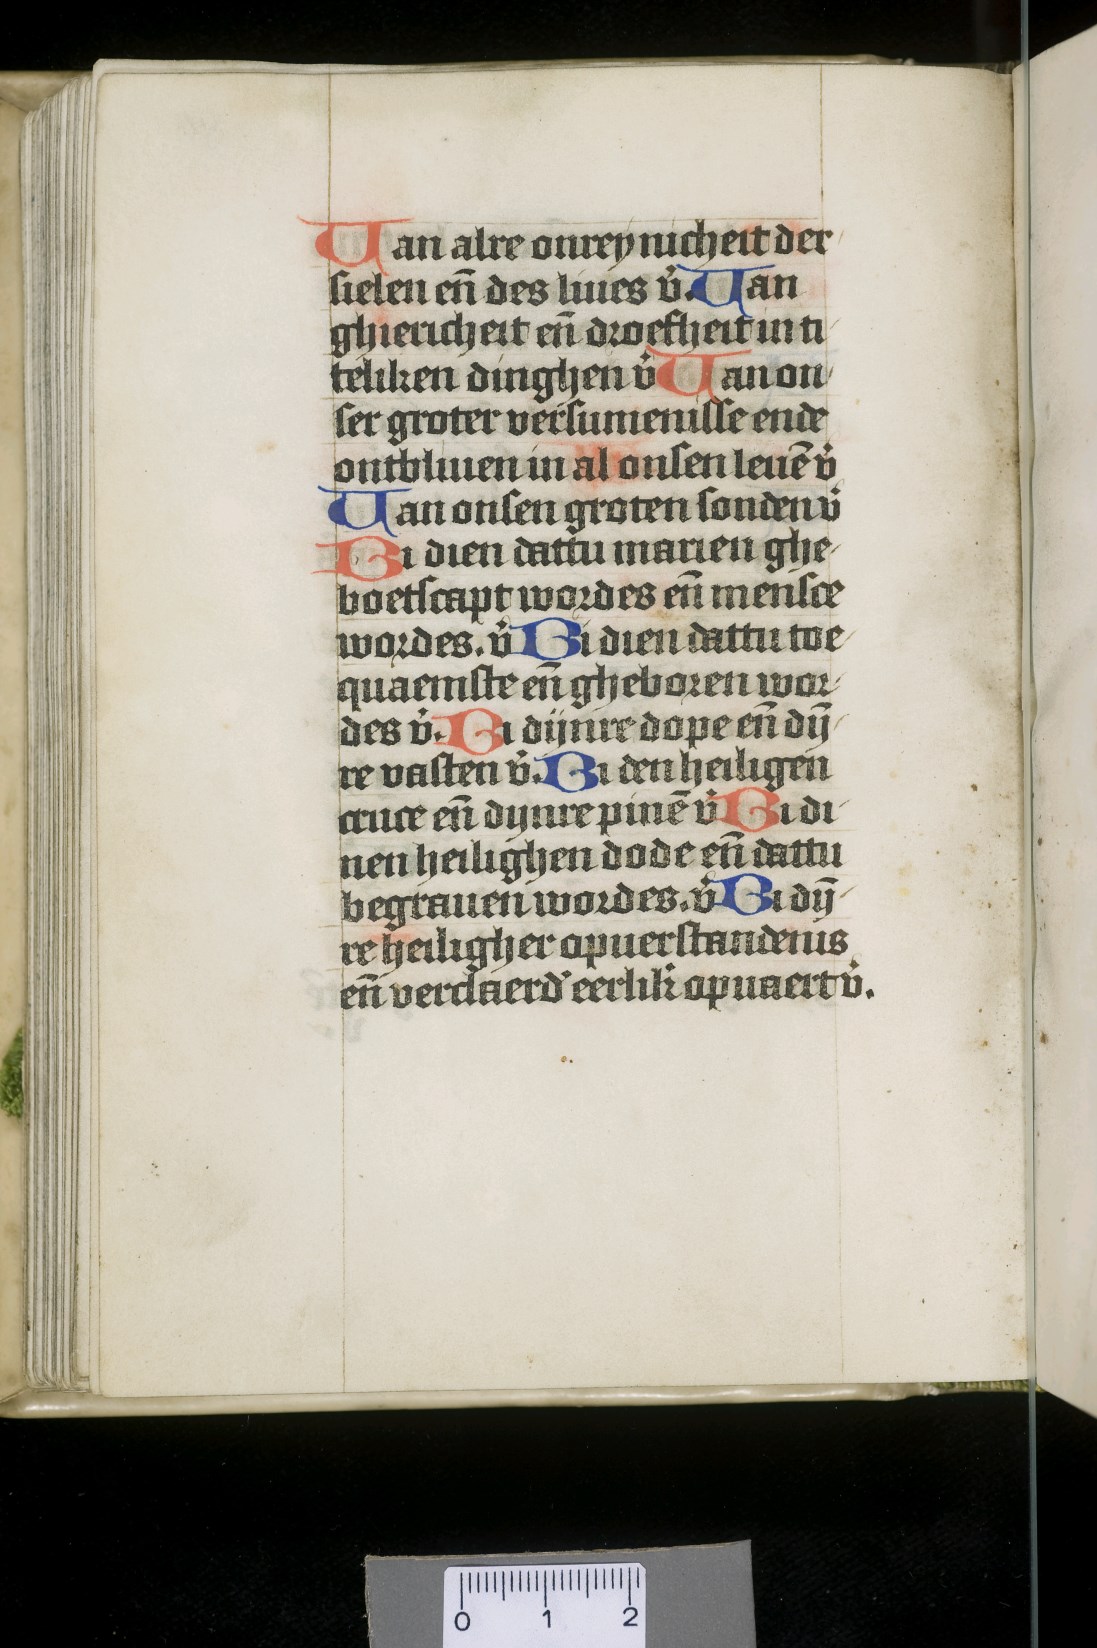 Uan alre onreynicheit der
sielen en̄ des liues v̇. Uan
ghiericheit en̄ droefheit in ti
teliken dinghen v̇ Uan on
ser groter versumenisse ende
ontbliuen in al onsen leuē v̇
Uan onsen groten sonden v̇
Bi dien dattu marien ghe
boetscapt wordes en̄ mensce
wordes. v̇ Bi dien dattu toe
quaemste en̄ gheboren wor
des v̇. Bi dijnre dope en̄ dȳ
re vasten v̇. Bi den heiligen
cruce en̄ dijnre pinē v̇ Bi di
nen heilighen dode en̄ dattu
begrauen wordes. v̇ Bi dȳ
re heiligher opuerstandenis
en̄ verclaerd' eerlik̇ opuaert v̇.
0 1 2